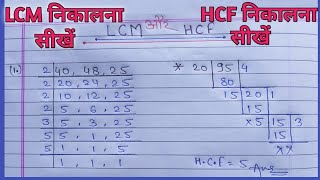 LCM निकालना सीखें
HCF निकालना सीखें
LCM और HCF
(1.) 2 | 40, 48, 25
2 | 20, 24, 25
2 | 10, 12, 25
2 | 5, 6, 25
3 | 5, 3, 25
5 | 5, 1, 25
5 | 1, 1, 5
1, 1, 1
* 20 | 95 | 4
80
15 | 20 | 1
15
×5 | 15 | 3
15
××
H.C.F = 5 Ans